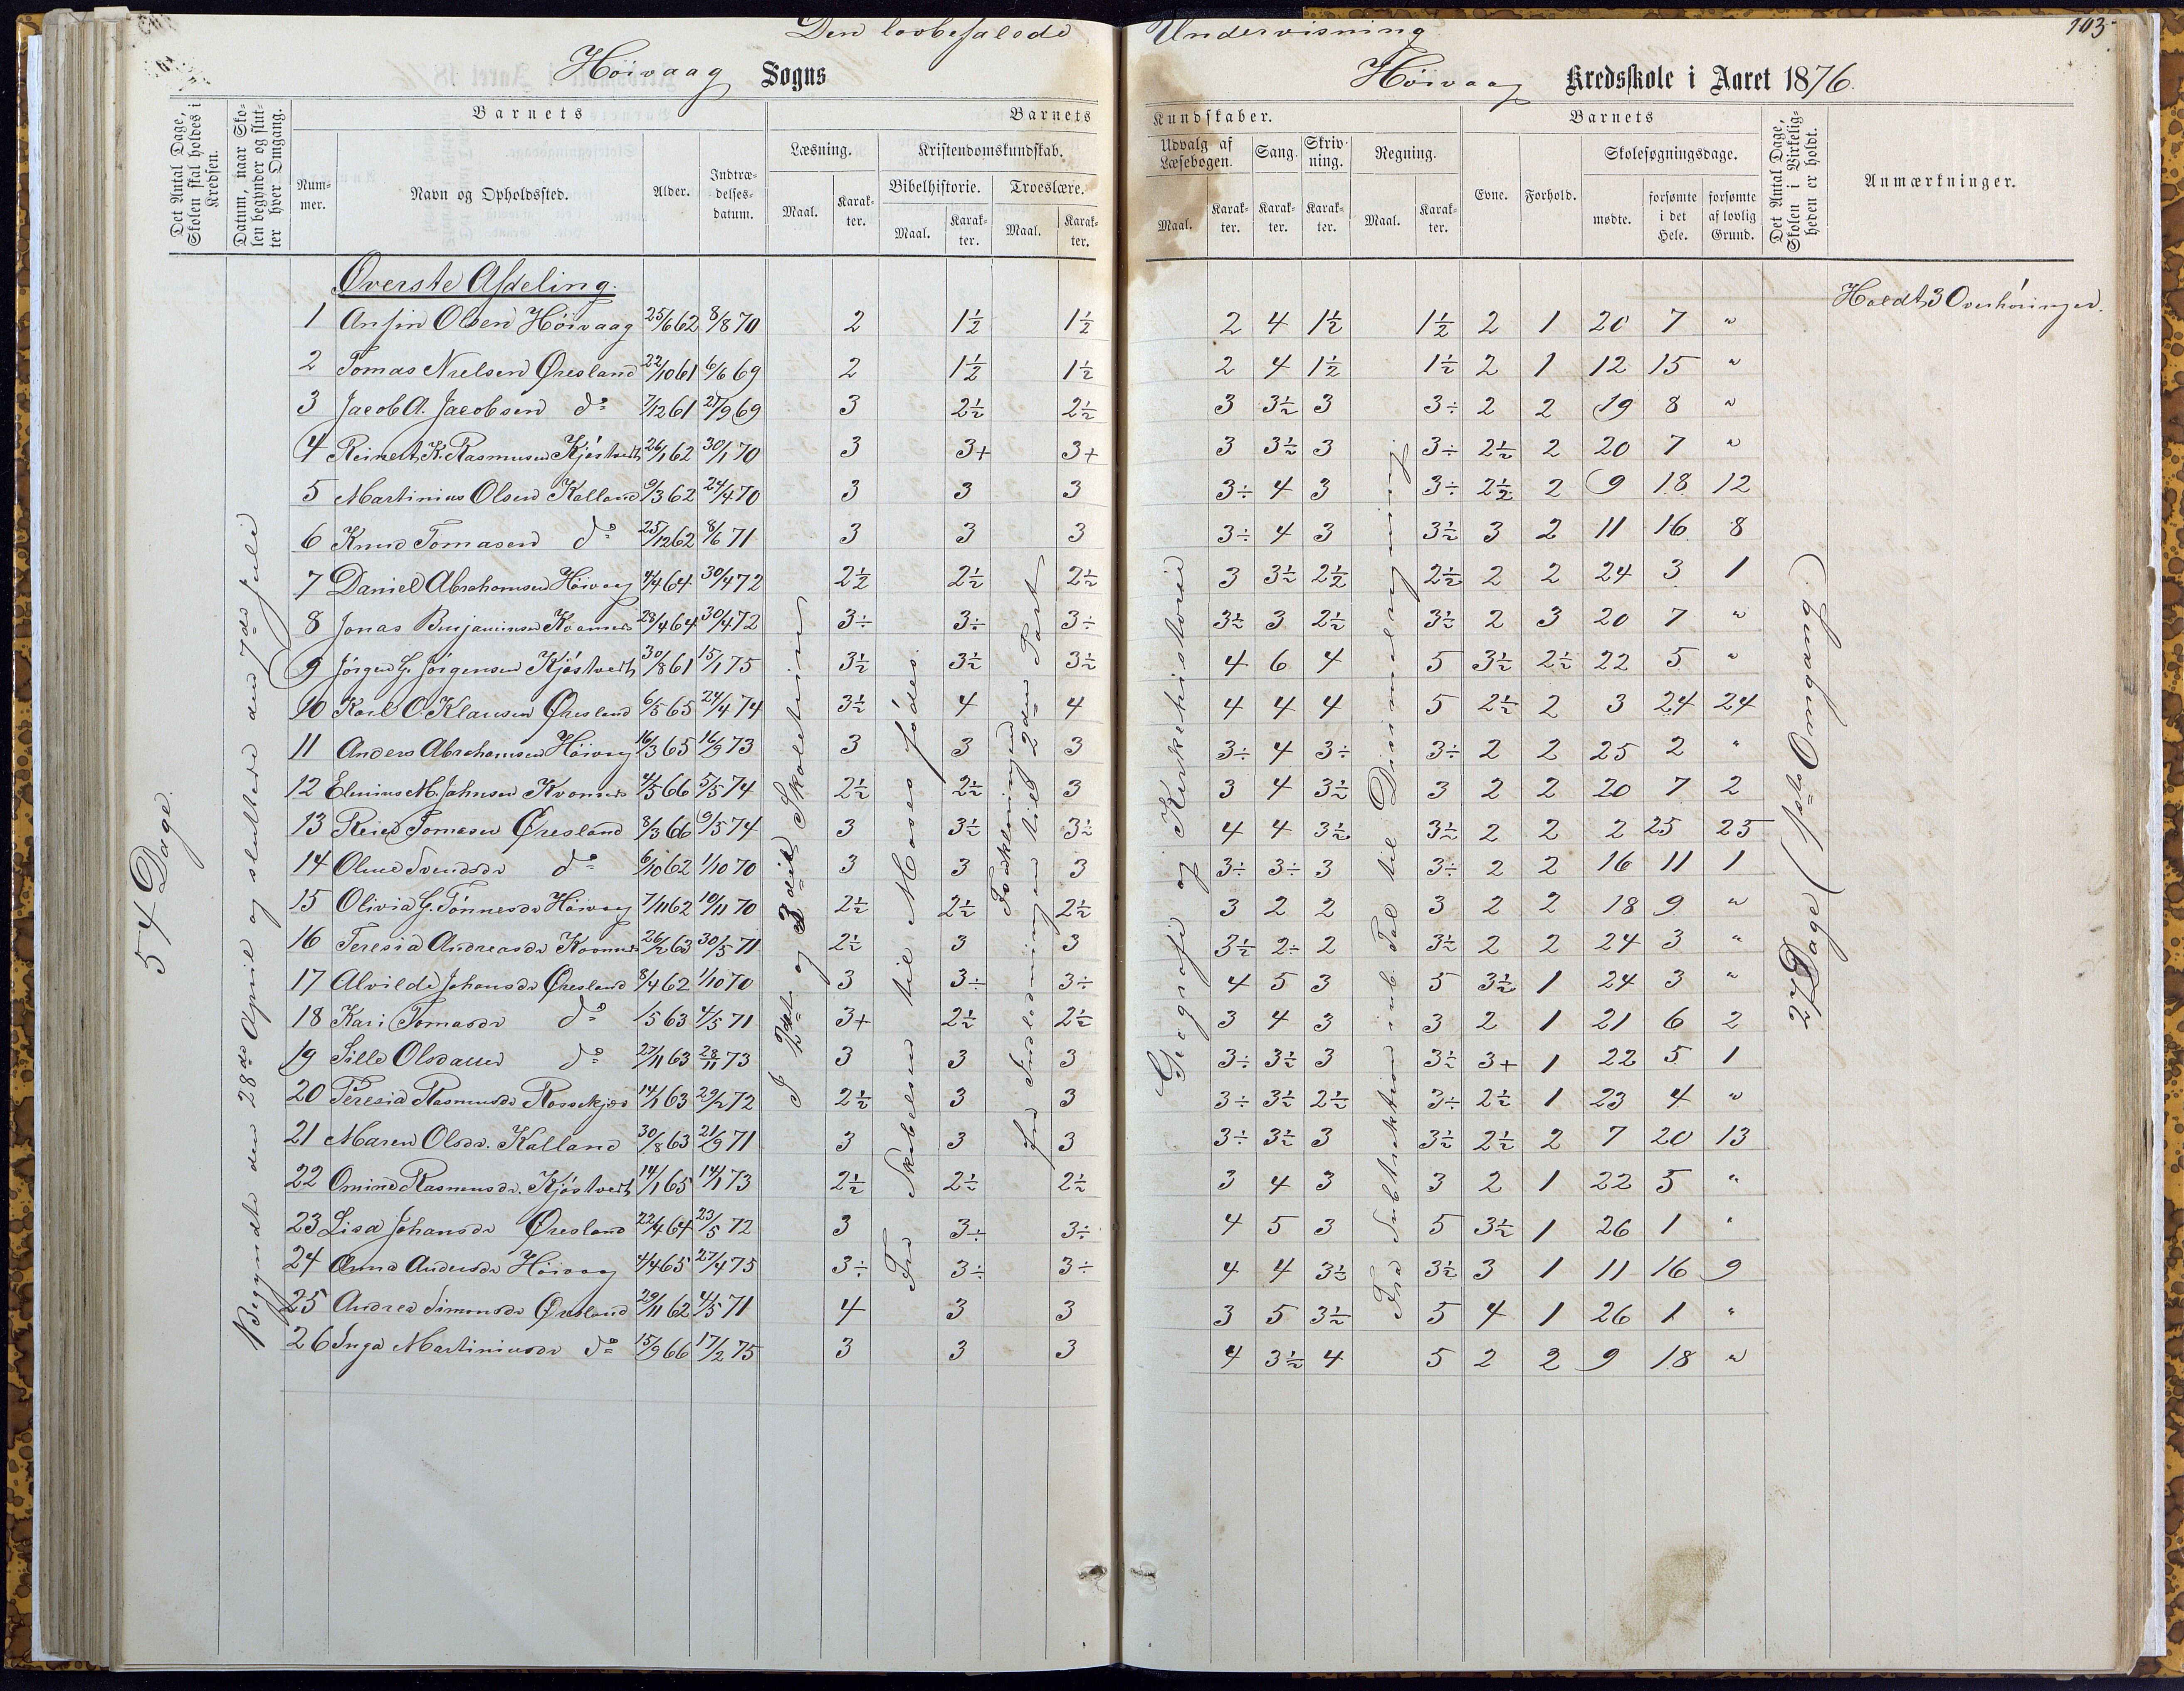 Den lovbefalede Undervisning
103
Höivaag Sogns Höivaag Kredsskole i Aaret 1876.
Det Antal Dage, Skolen skal holdes i Kredsen.
Datum, naar Skolen begynder og slutter hver Omgang.
Barnets
Nummer.
Navn og Opholdssted.
Alder.
Indtrædelsesdatum.
Barnets Kundskaber.
Læsning.
Maal.
Karakter.
Kristendomskundskab.
Bibelhistorie.
Maal.
Karakter.
Troeslære.
Maal.
Karakter.
Udvalg af Læsebogen.
Maal.
Karakter.
Sang.
Karakter.
Skrivning.
Karakter.
Regning.
Maal.
Karakter.
Barnets
Evne.
Forhold.
Skolesøgningsdage.
mødte.
forsømte i det Hele.
forsømte af lovlig Grund.
Det Antal Dage, Skolen i Virkeligheden er holdt.
Anmærkninger.
54 Dage.
Begyndte den 28de April og sluttede den 7de Juli
Øverste Afdeling.
Holdt 3 Overhöringer.
1 Anfin Olsen Höivaag 25/6 62 8/8 70 2 1½ 1½ 2 4 1½ 1½ 2 1 20 7 "
2 Tomas Nielsen Øresland 22/10 61 6/6 69 2 1½ 1½ 2 4 1½ 1½ 2 1 12 15 "
3 Jacob A. Jacobsen do 7/12 61 27/9 69 3 2½ 2½ 3 3½ 3 3÷ 2 2 19 8 "
4 Reinert K. Rasmusen Kjöstvedt 26/1 62 30/1 70 3 3+ 3+ 3 3½ 3 3÷ 2½ 2 20 7 "
5 Martinius Olsen Kalland 9/3 62 24/4 70 3 3 3 3÷ 4 3 3÷ 2½ 2 9 18 12
6 Knud Tomasen do 25/12 62 8/6 71 3 3 3 3÷ 4 3 3½ 3 2 11 16 8
7 Daniel Abrahamsen Höivaag 4/4 64 30/4 72 2½ 2½ 2½ 3 3½ 2½ 2½ 2 2 24 3 1
8 Jonas Benjaminsen Kvannes 28/4 64 30/4 72 3÷ 3÷ 3÷ 3½ 3 2½ 3½ 2 3 20 7 "
9 Jörgen G. Jörgensen Kjöstvedt 30/8 61 15/1 75 3½ 3½ 3½ 4 6 4 5 3½ 2½ 22 5 "
10 Karl O. Klausen Øresland 6/5 65 24/4 74 3½ 4 4 4 4 4 5 2½ 2 3 24 24
11 Anders Abrahamsen Höivaag 16/3 65 16/9 73 3 3 3 3÷ 4 3÷ 3÷ 2 2 25 2 "
12 Elenius M. Johnsen Kvannes 4/5 66 5/5 74 2½ 2½ 3 3 4 3½ 3 2 2 20 7 2
13 Reier Tomasen Øresland 8/3 66 9/5 74 3 3½ 3½ 4 4 3½ 3½ 2 2 2 25 25
14 Oline Svendsdr do 6/10 62 1/10 70 3 3 3 3÷ 3÷ 3 3÷ 2 2 16 11 1
15 Olivia G. Tönnesdr Höivaag 7/11 62 10/11 70 2½ 2½ 2½ 3 2 2 3 2 2 18 9 "
16 Teresia Andreasdr Kvannes 26/2 63 30/5 71 2½ 3 3 3½ 2÷ 2 3½ 2 2 24 3 "
17 Alvilde Johansdr Øresland 8/4 62 1/10 70 3 3÷ 3÷ 4 5 3 5 3½ 1 24 3 "
18 Kari Tomasdr do 1/5 63 4/5 71 3+ 2½ 2½ 3 4 3 3 2 1 21 6 2
19 Sille Olsdatter do 27/11 63 28/11 73 3 3 3 3÷ 3½ 3 3½ 3+ 1 22 5 1
20 Teresia Rasmusdr Rossekjær 14/1 63 29/2 72 2½ 3 3 3÷ 3½ 2½ 3÷ 2½ 1 23 4 "
21 Maren Olsdr. Kalland 30/8 63 21/9 71 3 3 3 3÷ 3½ 3 3½ 2½ 2 7 20 13
22 Omine Rasmusdr. Kjöstvedt 14/1 65 14/1 73 2½ 2½ 2½ 3 4 3 3 2 1 22 5 "
23 Lisa Johansdr Øresland 22/4 64 23/5 72 3 3÷ 3÷ 4 5 3 5 3½ 1 26 1 "
24 Anna Andersdr Höivaag 4/4 65 27/4 75 3÷ 3÷ 3÷ 4 4 3½ 3½ 3 1 11 16 9
25 Andrea Simonsdr Øresland 29/11 62 4/5 71 4 3 3 3 5 3½ 5 4 1 26 1 "
26 Inga Martiniusdr do 15/9 66 17/2 75 3 3 3 4 3½ 4 5 2 2 9 18 "
I 2det og 3die Skoletrin
Fra Skabelsen til Moses födes.
Forklaringen
fra Indledningen til 2den Part
Geografi og Kirkehistorie
Fra Subtraktion i ub. Tal til Decimalregning.
27 Dage (1ste Omgang.)